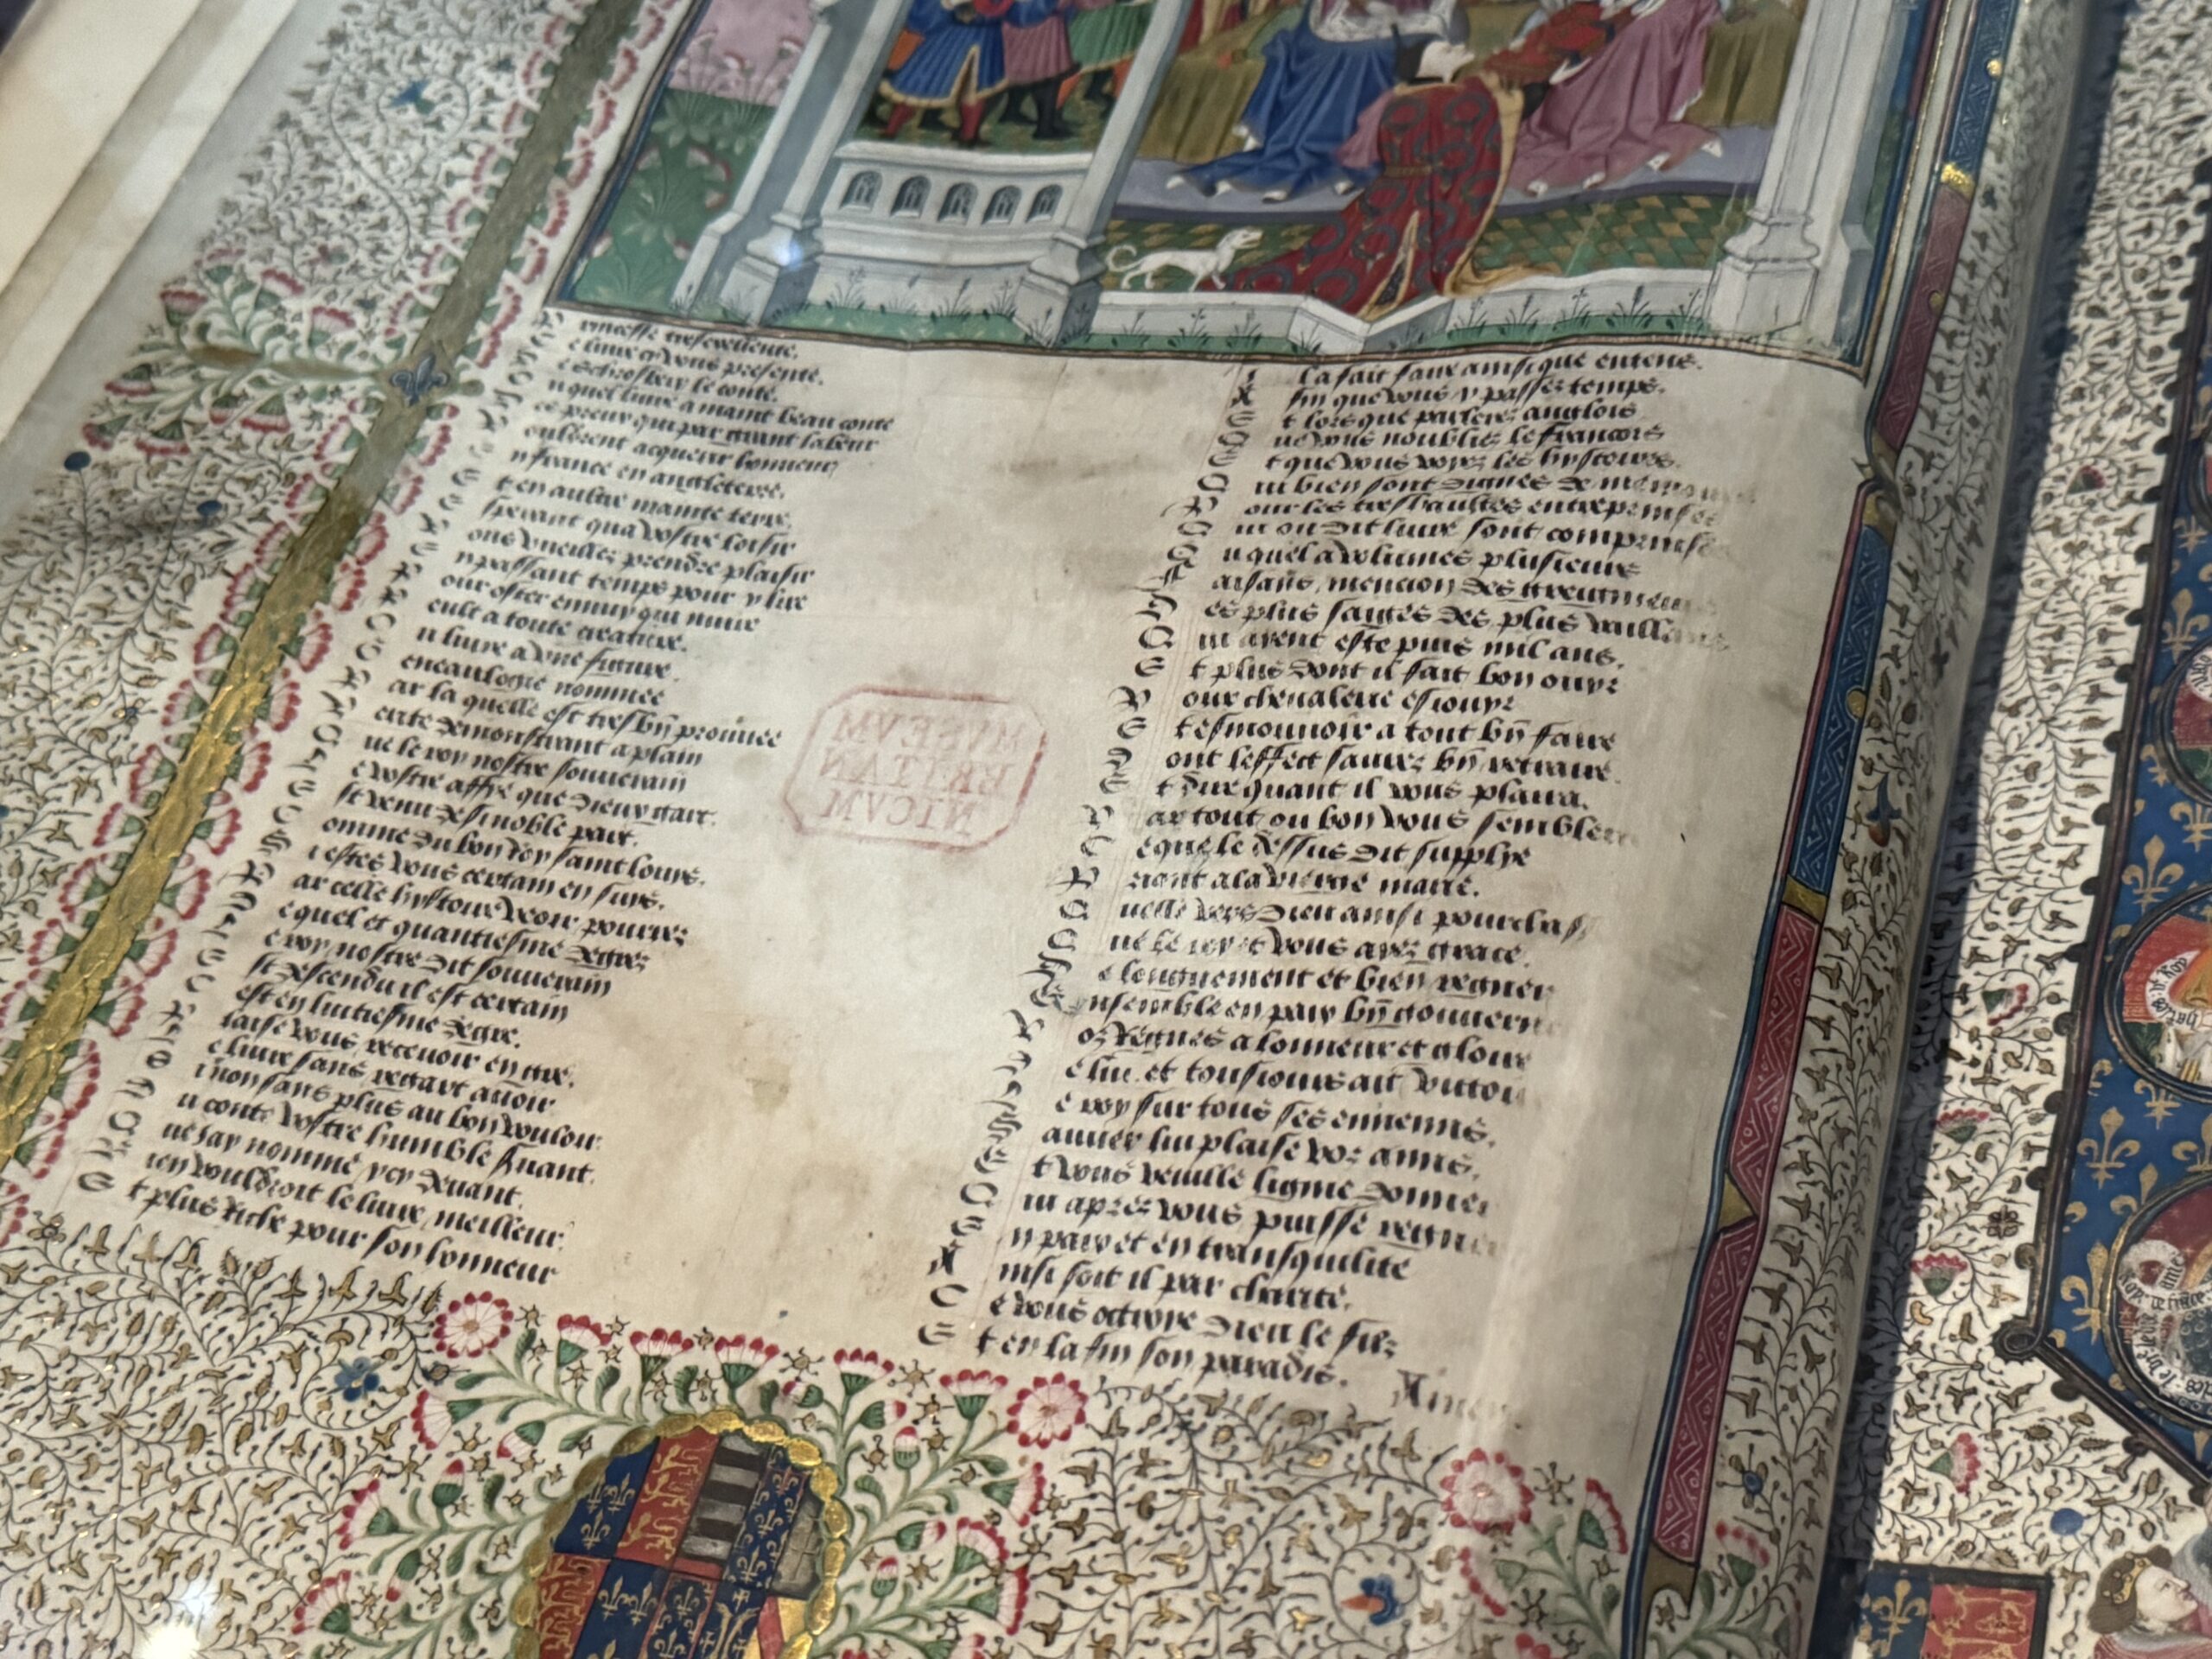 Princesse tresexcellente,
Ce liure cy vous presente.
De Schrosbery le conte.
Ou quel liure a maint beau conte
Des preux qui par grant labeur
Voulurent acquerir honneur
En france en angleterre.
Et en aultre mainte terre.
Esperant qua vostre loisir
Vous vueillez prendre plaisir
En passant temps pour y lire
Pour oster ennuy qui nuire
Peult a toute creature.
Ou liure a une figure.
Geneaulogie nommee
Par la quelle est tres bn prouuee
Verite demonstrant a plain
Que le roy nostre souuerain
Et vostre affye que dieux gart.
Est venu de si noble part.
Comme du bon roy saint louys.
Si estes vous certain en suis.
Par celle hystoire veoir pourrez
Le quel et quantiesme degrez
Le roy nostre dit souuerain
Est descendu il est certain
Cest en huitiesme degre.
Plaise vous receuoir en gre.
Le liure sans regart auoir
Sinon sans plus au bon vouloir
Du conte vostre humble seruant.
Que iay nomme ycy deuant.
Bien vouldroit le liure meilleur.
Et plus riche pour son honneur
Il a fait faire ainsi que entens.
Affin que vous y passez temps.
Et lors que parlerez anglois
Que vous noubliez le francois
Et que vous voyez les hystoires.
Qui bien sont dignes de memoires
Pour les tres haultes entreprinses
Qui ou dit liure sont comprinses
Ou quel a volumes plusieurs
Faisans mencion des greigneurs
Des plus saiges des plus vaillans
Qui ayent este puis mil ans.
Et plus dont il fait bon ouyr
Pour cheualerie esiouyr
Et esmouuoir a tout bn faire
Dont leffect saurez bn retraire.
Et dire quant il vous plaira.
Par tout ou bon vous semblera
Ce que le dessus dit supplye
Priant a la vierge marie.
Quelle vers dieu ainsi pourchasse
Que le roy et vous ayez grace.
De longuement et bien regner
Ensemble en paix bn gouuerner
Voz regnes a lonneur et gloire
De lui. et tousiours ait victoire
Le roy sur tous ses ennemis.
Sauuer lui plaise voz amis.
Et vous veuille lignie donner
Qui aprez vous puisse regner
En paix et en transquilite
Ainsi soit il par charite.
Ce vous octroye dieu le filz
Et en la fin son paradis. Amen
MVSEVM
BRITAN
NICVM